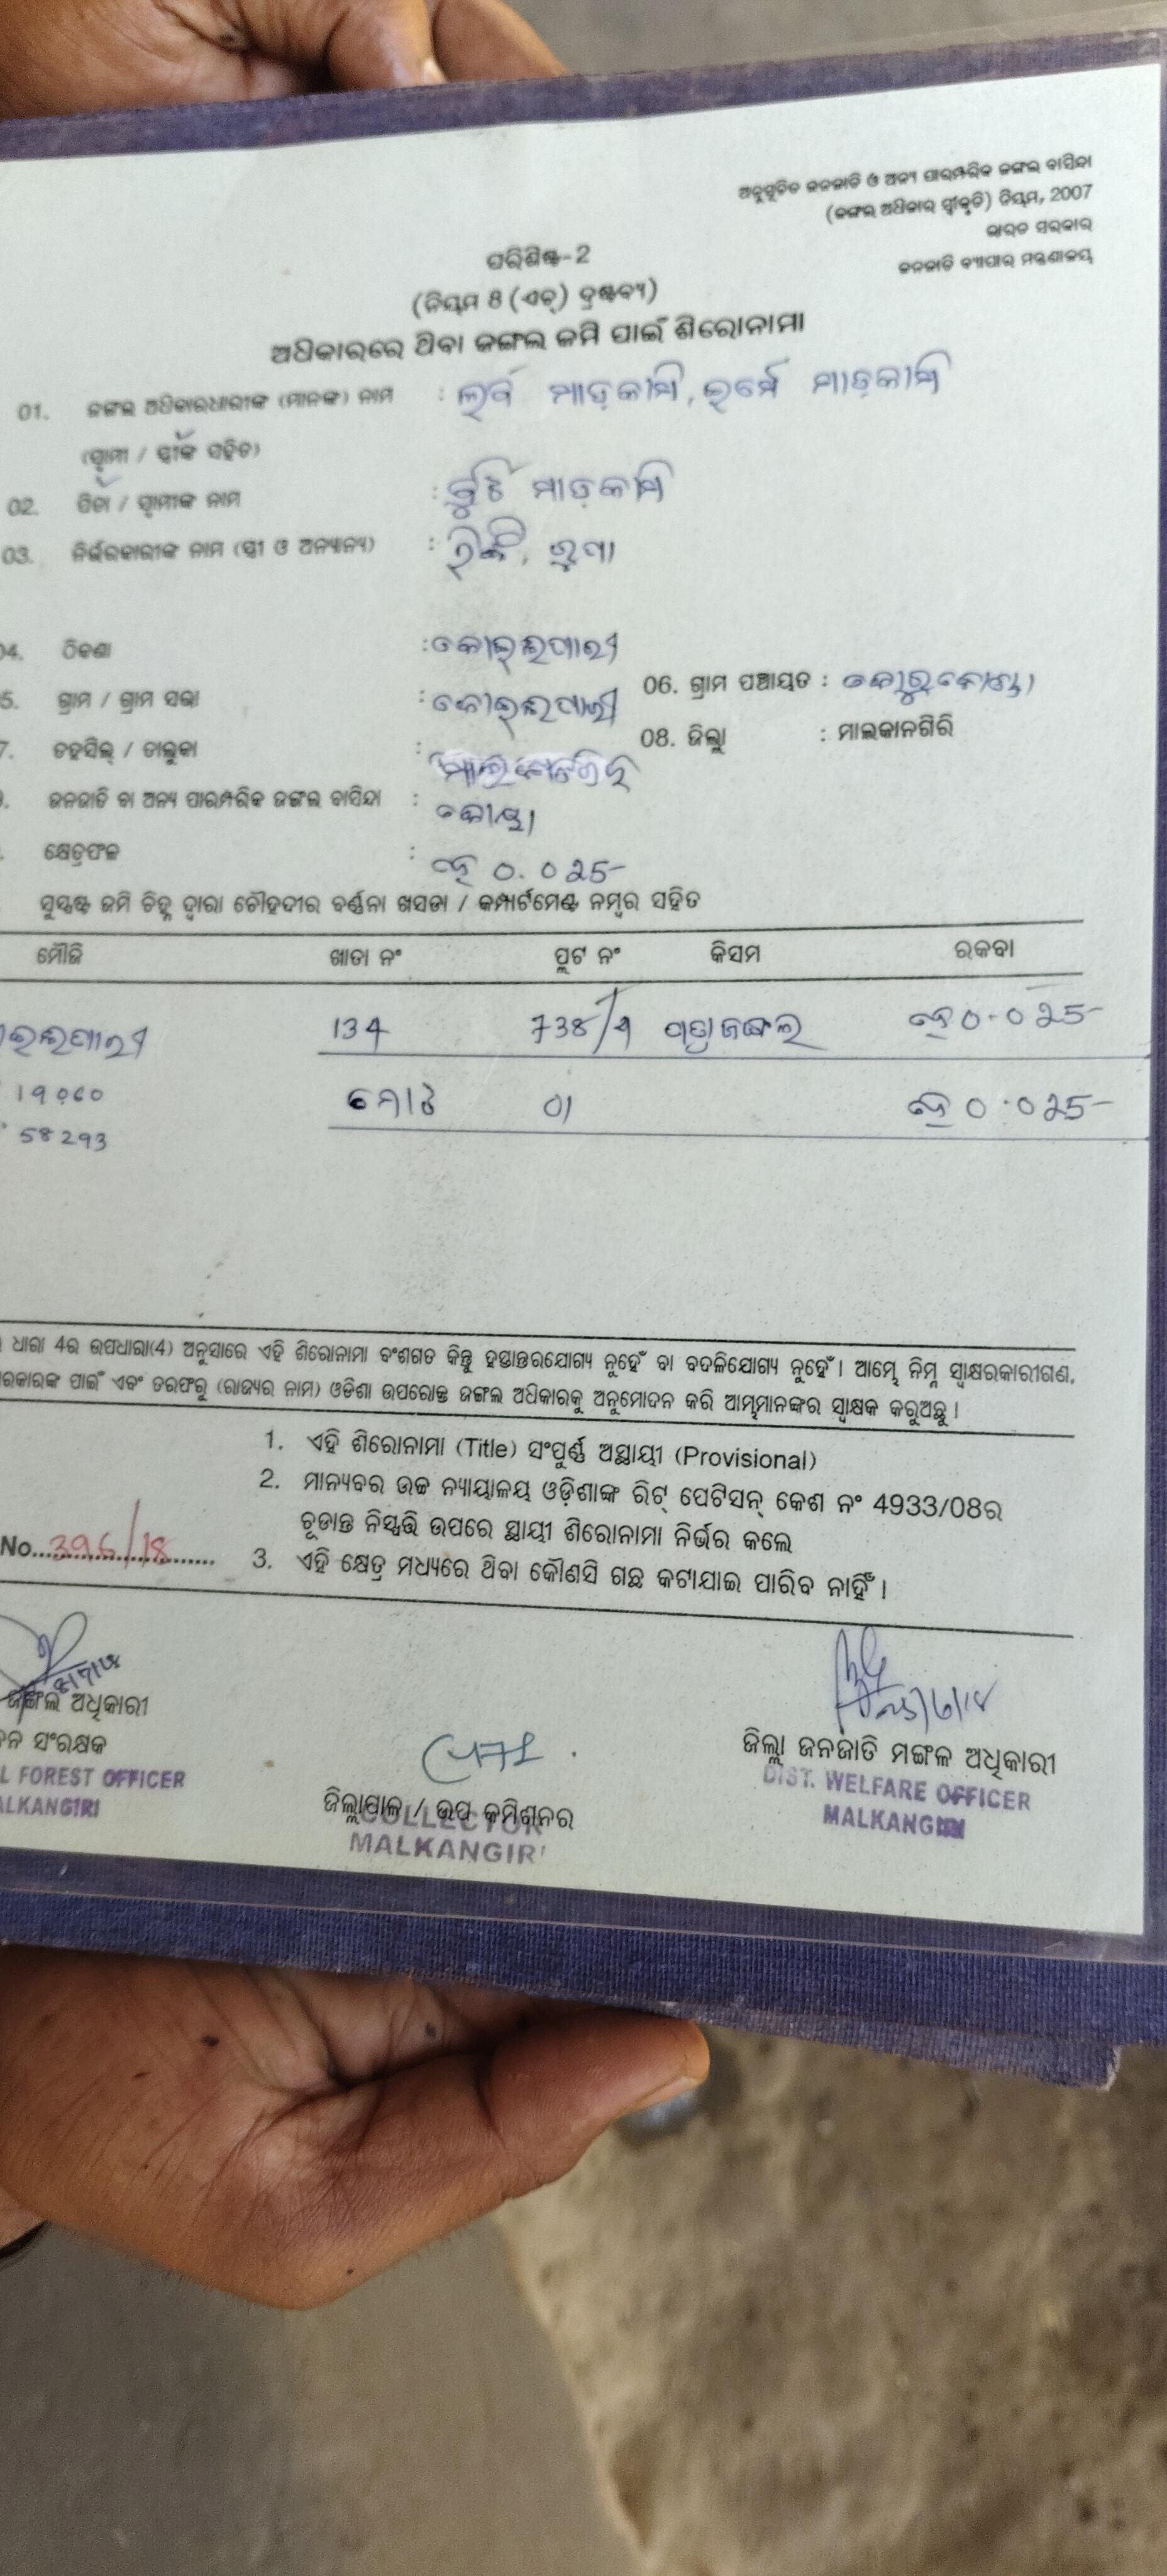 ଅନୁସୂଚିତ ଜନଜାତି ଓ ଅନ୍ୟ ପାରମ୍ପରିକ ଜଙ୍ଗଲ ବାସିନ୍ଦା
(ଜଙ୍ଗଲ ଅଧିକାର ସ୍ୱୀକୃତି) ନିୟମ, 2007
ଭାରତ ସରକାର
ଜନଜାତି ବ୍ୟାପାର ମନ୍ତ୍ରଣାଳୟ
ପରିଶିଷ୍ଟ-2
(ନିୟମ 8 (ଏଚ୍) ଦ୍ରଷ୍ଟବ୍ୟ)
ଅଧିକାରରେ ଥିବା ଜଙ୍ଗଲ ଜମି ପାଇଁ ଶିରୋନାମା
01. ଜଙ୍ଗଲ ଅଧିକାରଧାରୀଙ୍କ (ମାନଙ୍କ) ନାମ : ମାଡ଼କାମି, ମାଡ଼କାମି
(ସ୍ୱାମୀ / ସ୍ତ୍ରୀଙ୍କ ସହିତ)
02. ପିତା / ସ୍ୱାମୀଙ୍କ ନାମ : ମାଡ଼କାମି
03. ନିର୍ଭରକାରୀଙ୍କ ନାମ (ସ୍ତ୍ରୀ ଓ ଅନ୍ୟାନ୍ୟ) :
04. ଠିକଣା : କୋଇଲପାରୀ
5. ଗ୍ରାମ / ଗ୍ରାମ ସଭା : କୋଇଲପାରୀ 06. ଗ୍ରାମ ପଞ୍ଚାୟତ : କୋରୁକୋଣ୍ଡା
7. ତହସିଲ୍ / ତାଲୁକା : ମାଲକାନଗିରି 08. ଜିଲ୍ଲା : ମାଲକାନଗିରି
ଜନଜାତି ବା ଅନ୍ୟ ପାରମ୍ପରିକ ଜଙ୍ଗଲ ବାସିନ୍ଦା : କୋୟା
କ୍ଷେତ୍ରଫଳ : ହେ 0.025
ସୁସ୍ପଷ୍ଟ ଜମି ଚିହ୍ନ ଦ୍ୱାରା ଚୌହଦୀର ବର୍ଣ୍ଣନା ଖସଡା / କମ୍ପାର୍ଟମେଣ୍ଟ ନମ୍ବର ସହିତ
ମୌଜି ଖାତା ନଂ ପ୍ଲଟ ନଂ କିସମ ରକବା
ଇଲପାରୀ 134 738/ ପତ୍ରଜଙ୍ଗଲ ହେ 0.025
ମୋଟ 01 ହେ 0.025
58293
ଧାରା 4ର ଉପଧାରା(4) ଅନୁସାରେ ଏହି ଶିରୋନାମା ବଂଶଗତ କିନ୍ତୁ ହସ୍ତାନ୍ତରଯୋଗ୍ୟ ନୁହେଁ ବା ବଦଳିଯୋଗ୍ୟ ନୁହେଁ। ଆମ୍ଭେ ନିମ୍ନ ସ୍ୱାକ୍ଷରକାରୀଗଣ,
ରକାରଙ୍କ ପାଇଁ ଏବଂ ତରଫରୁ (ରାଜ୍ୟର ନାମ) ଓଡିଶା ଉପରୋକ୍ତ ଜଙ୍ଗଲ ଅଧିକାରକୁ ଅନୁମୋଦନ କରି ଆମ୍ଭମାନଙ୍କର ସ୍ୱାକ୍ଷକ କରୁଅଛୁ।
1. ଏହି ଶିରୋନାମା (Title) ସଂପୂର୍ଣ୍ଣ ଅସ୍ଥାୟୀ (Provisional)
2. ମାନ୍ୟବର ଉଚ୍ଚ ନ୍ୟାୟାଳୟ ଓଡ଼ିଶାଙ୍କ ରିଟ୍ ପେଟିସନ୍ କେଶ ନଂ 4933/08ର
ଚୂଡାନ୍ତ ନିଷ୍ପତ୍ତି ଉପରେ ସ୍ଥାୟୀ ଶିରୋନାମା ନିର୍ଭର କଲେ
No. 396/18
3. ଏହି କ୍ଷେତ୍ର ମଧ୍ୟରେ ଥିବା କୌଣସି ଗଛ କଟାଯାଇ ପାରିବ ନାହିଁ।
ଜଙ୍ଗଲ ଅଧିକାରୀ
ସଂରକ୍ଷକ
L FOREST OFFICER
ALKANGIRI
ଜିଲ୍ଲାପାଳ / ଉପ କମିଶନର
COLLECTOR
MALKANGIRI
ଜିଲ୍ଲା ଜନଜାତି ମଙ୍ଗଳ ଅଧିକାରୀ
DIST. WELFARE OFFICER
MALKANGIRI